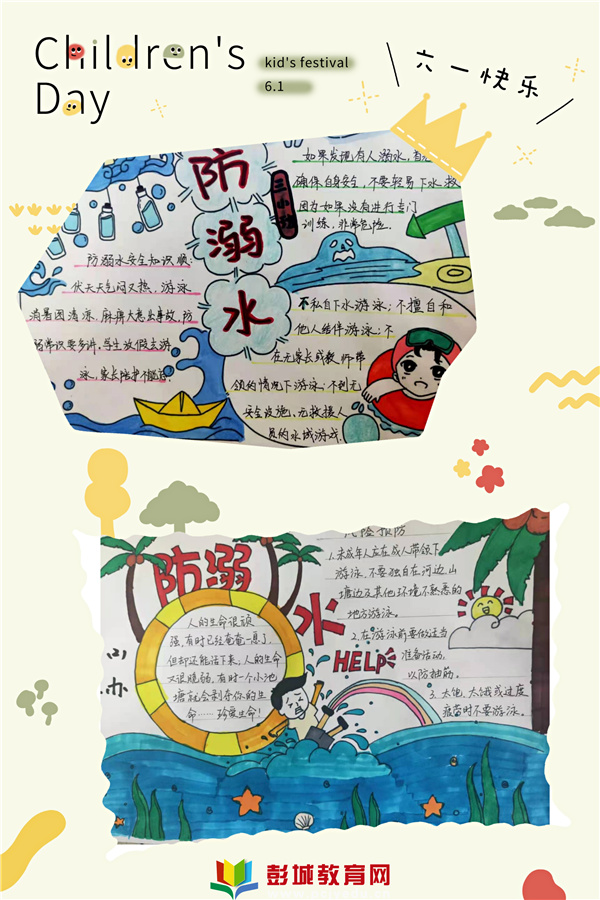 Children's
Day
kid's festival
6.1
六一快乐
防
溺
水
防溺水安全知识顺:
伏天天气闷又热，游泳
消暑图清凉，麻痹大意出事故，防
溺常识要多讲，学生放假去游
泳，家长陪护不能忘。
如果发现有人溺水，首先
确保自身安全，不要轻易下水救
因为如果没有进行专门
训练，非常危险。
不私自下水游泳；不擅自和
他人结伴游泳；不
在无家长或教师带
领的情况下游泳；不到无
安全设施、无救援人
员的水域游戏.
防溺
水
人的生命很顽
强，有时已经奄奄一息了，
但却还能活下来，人的生命
又很脆弱，有时一个小池
塘就会剥夺你的生
命……珍爱生命！
HELP
危险预防
1.未成年人应在成人带领下
游泳，不要独自在河边、山
塘边及其他环境不熟悉的
地方游泳。
2.在游泳前要做适当
准备活动，
以防抽筋。
3.太饱、太饿或过度
疲劳时不要游泳。
彭城教育网